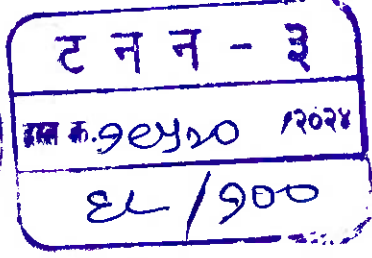 ट न न - ३
दस्त क्र. १९५२० /२०२४
६८ / १००